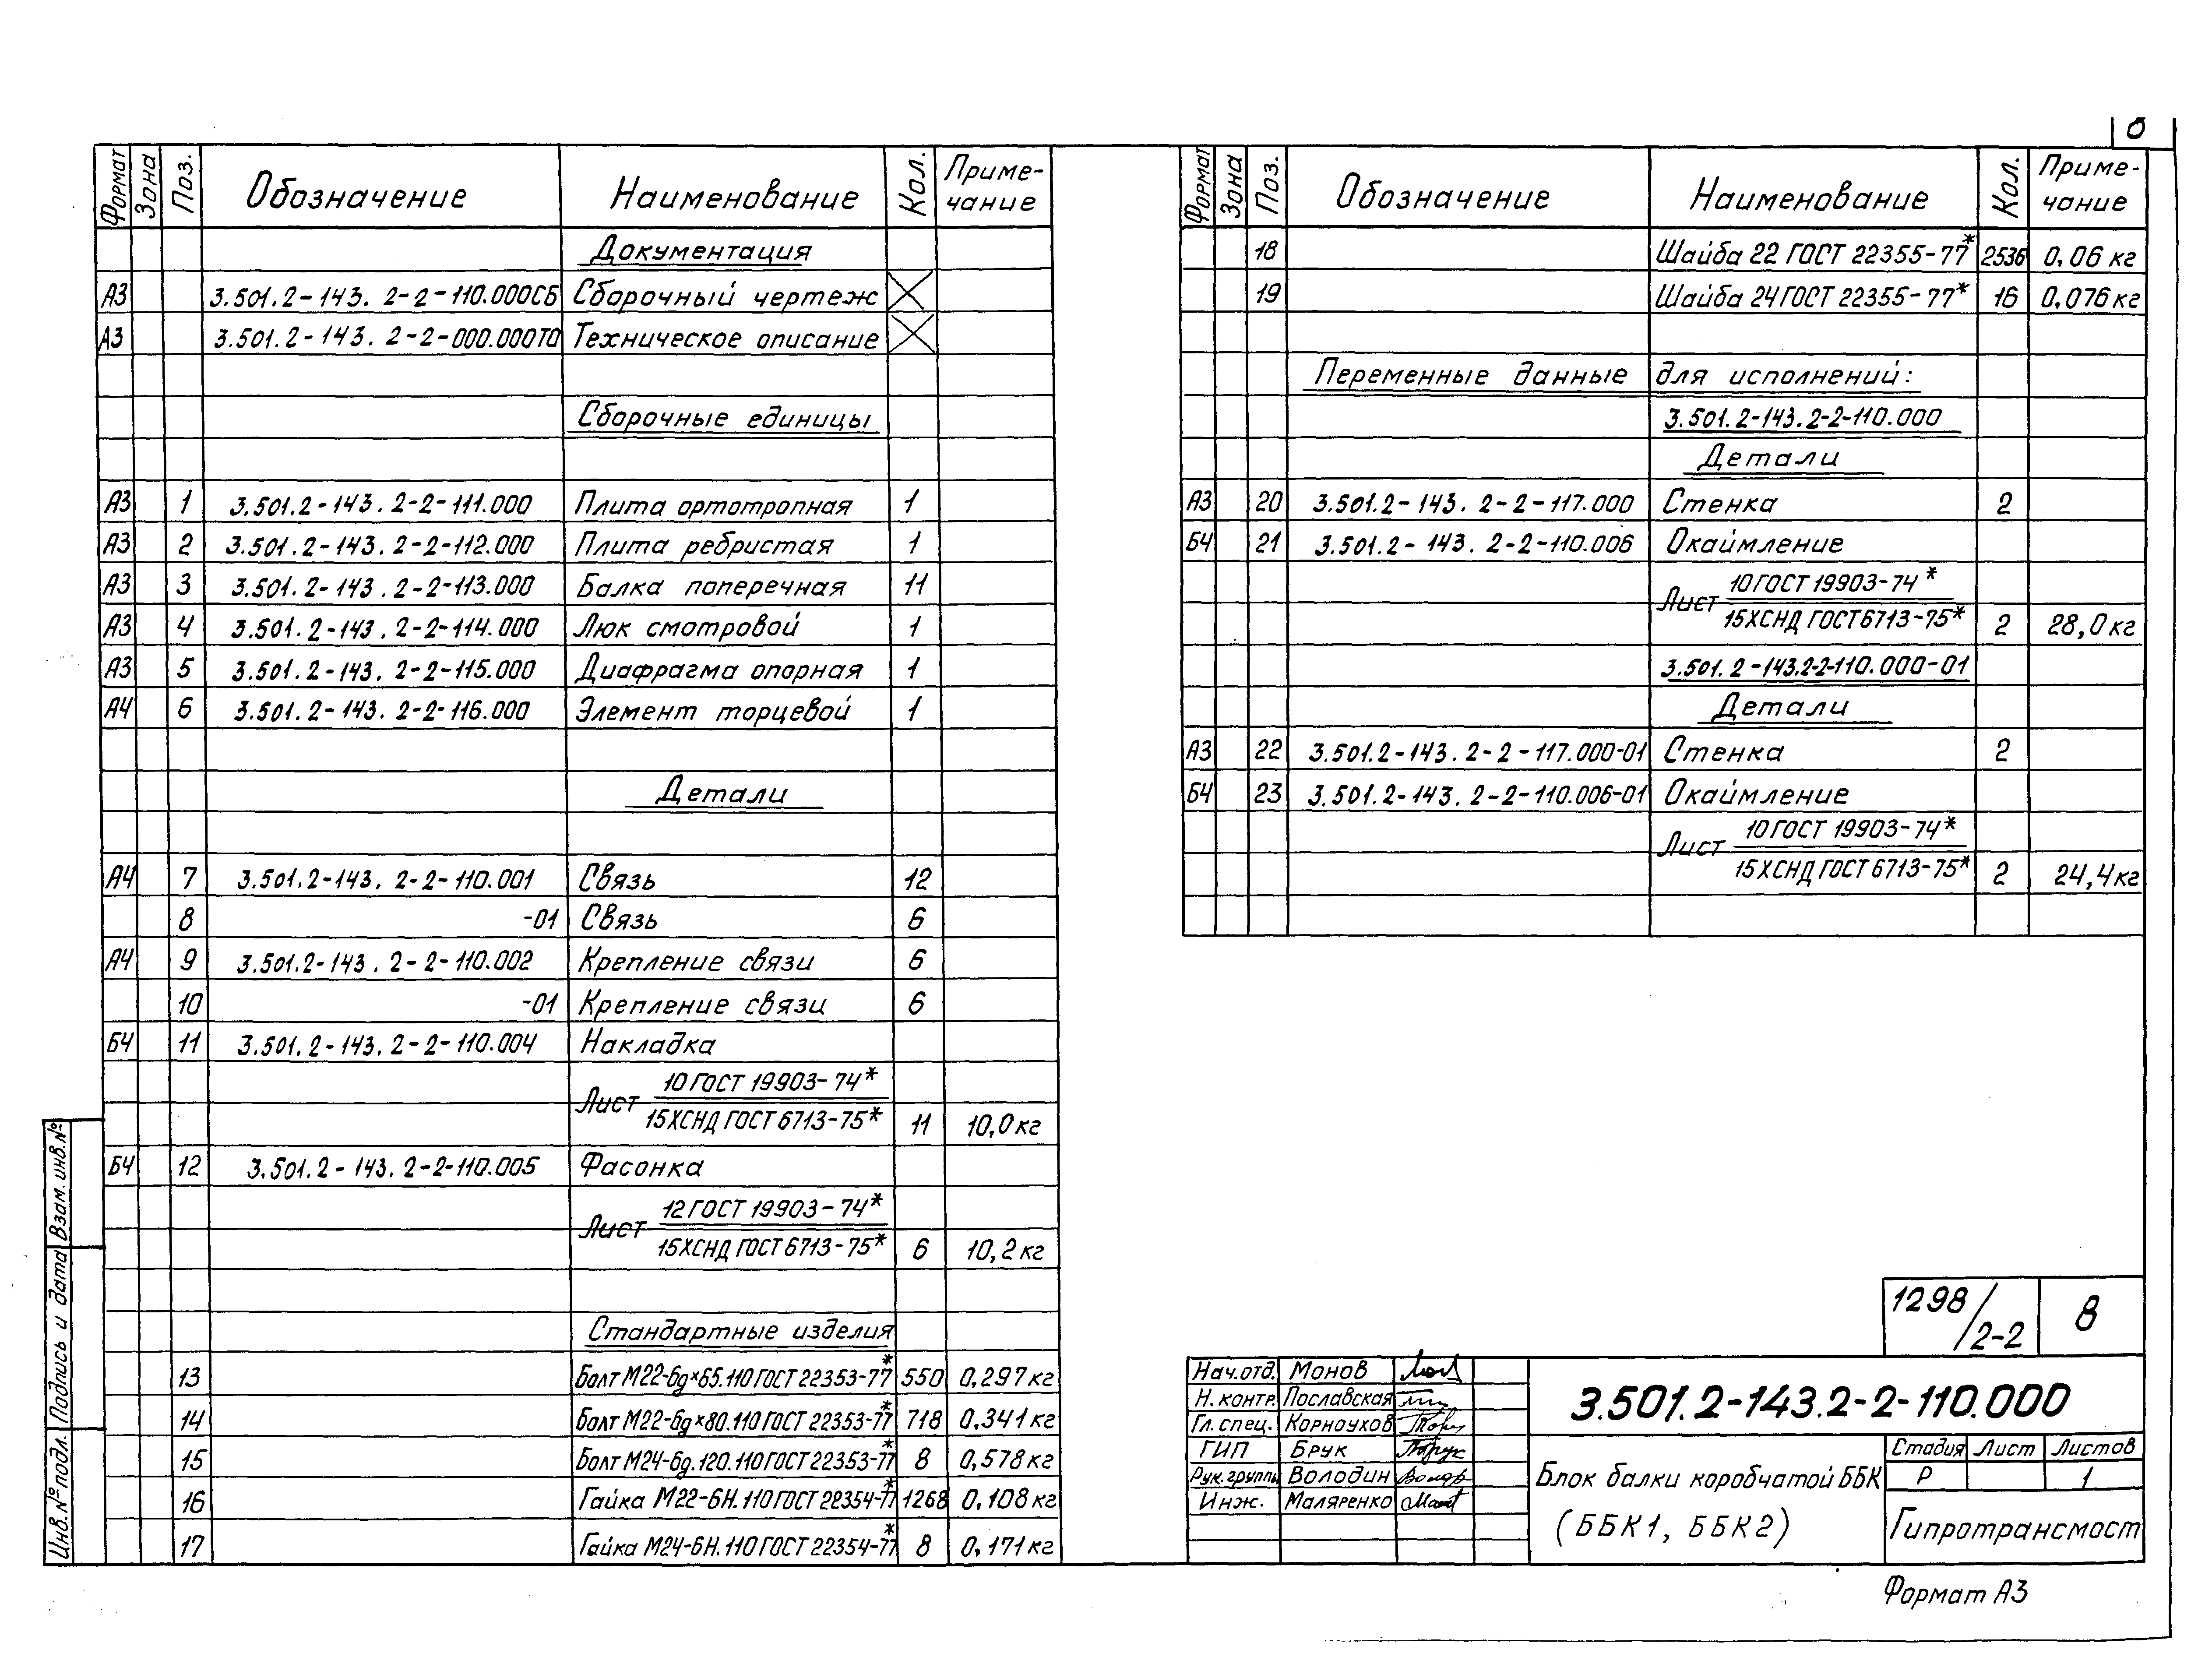 Формат Зона Поз. Обозначение Наименование Кол. Приме-чание
Документация
А3 3.501.2-143. 2-2-110.000СБ Сборочный чертеж
А3 3.501.2-143. 2-2-000.000ТО Техническое описание
Сборочные единицы
А3 1 3.501.2-143. 2-2-111.000 Плита ортотропная 1
А3 2 3.501.2-143. 2-2-112.000 Плита ребристая 1
А3 3 3.501.2-143. 2-2-113.000 Балка поперечная 11
А3 4 3.501.2-143. 2-2-114.000 Люк смотровой 1
А3 5 3.501.2-143. 2-2-115.000 Диафрагма опорная 1
А4 6 3.501.2-143. 2-2-116.000 Элемент торцевой 1
Детали
А4 7 3.501.2-143. 2-2-110.001 Связь 12
8 -01 Связь 6
А4 9 3.501.2-143. 2-2-110.002 Крепление связи 6
10 -01 Крепление связи 6
БЧ 11 3.501.2-143. 2-2-110.004 Накладка
10 ГОСТ 19903-74*
Лист
15ХСНД ГОСТ 6713-75* 11 10,0 кг
БЧ 12 3.501.2-143. 2-2-110.005 Фасонка
12 ГОСТ 19903-74*
Лист
15ХСНД ГОСТ 6713-75* 6 10,2 кг
Стандартные изделия
13 Болт М22-6g×65.110 ГОСТ 22353-77* 550 0,297 кг
14 Болт М22-6g×80.110 ГОСТ 22353-77* 718 0,341 кг
15 Болт М24-6g.120.110 ГОСТ 22353-77* 8 0,578 кг
16 Гайка М22-6Н.110 ГОСТ 22354-77* 1268 0,108 кг
17 Гайка М24-6Н.110 ГОСТ 22354-77* 8 0,171 кг
Инв.№ подл. Подпись и дата Взам.инв.№
Формат Зона Поз. Обозначение Наименование Кол. Приме-чание
18 Шайба 22 ГОСТ 22355-77* 2536 0,06 кг
19 Шайба 24 ГОСТ 22355-77* 16 0,076 кг
Переменные данные для исполнений:
3.501.2-143.2-2-110.000
Детали
А3 20 3.501.2-143. 2-2-117.000 Стенка 2
БЧ 21 3.501.2-143. 2-2-110.006 Окаймление
10 ГОСТ 19903-74*
Лист
15ХСНД ГОСТ 6713-75* 2 28,0 кг
3.501.2-143.2-2-110.000-01
Детали
А3 22 3.501.2-143. 2-2-117.000-01 Стенка 2
БЧ 23 3.501.2-143. 2-2-110.006-01 Окаймление
10 ГОСТ 19903-74*
Лист
15ХСНД ГОСТ 6713-75* 2 24,4 кг
1298/2-2 8
Нач.отд. Монов
Н. контр. Пославская
Гл. спец. Корноухов
ГИП Брук
Рук. группы Володин
Инж. Маляренко
3.501.2-143.2-2-110.000
Блок балки коробчатой ББК
(ББК1, ББК2)
Стадия Лист Листов
Р 1
Гипротрансмост
Формат А3